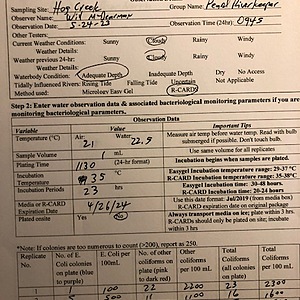 Sampling Site: Hog Creek Group Name: Pearl Riverkeeper
Observer Name:
Observation Date: 5-24-23 Observation Time (24hr): 0945
Other Testers:
Current Weather Conditions: Sunny Cloudy Rainy Windy
Weather Details:
Weather previous 24-hr: Sunny Cloudy Rainy Windy
Weather Details:
Waterbody Condition: Adequate Depth Inadequate Depth Dry No Access
Tidally Influenced Rivers: Rising Tide Falling Tide Uncertain Not Applicable
Method used: Micrology Easy Gel R-CARDs
Step 2: Enter water observation data & associated bacteriological monitoring parameters if you are
monitoring bacteriological parameters.
Observation Data
Variable Value Important Tips
Temperature (°C) Air: 21 Water 22.5 Measure air temp before water temp. Read with bulb
submerged if possible. Don't touch bulb.
Sample Volume 1 mL Use same volume for all replicates
Plating Time 1130 (24-hr format) Incubation begins when samples are plated.
Incubation
Temperature 35 °C Easygel Incubation temperature range: 29-37 °C
R-CARD Incubation temperature range: 35-38°C
Incubation Periods 23 hrs Easygel Incubation time: 30-48 hours.
R-CARD Incubation time: 20-24 hours
Media or R-CARD
Expiration Date 4/26/24 Use this date format: Jul/2019 (from media box)
R-CARD expiration date on original package
Plated onsite Yes No Always transport media on ice; plate within 3 hrs.
R-CARDs should only be plated on site; incubate
within 3 hrs.
*Note: If colonies are too numerous to count (>200), report as 250.
Replicate
No. No. of E.
Coli colonies
on plate (blue
to purple) E. Coli per
100mL No. of other
coliforms on
plate (pink
to dark red) Other
coliforms
per 100 mL Total
Coliforms
(all colonies
on plate) Total
Coliforms
per 100 mL
1 1 100 22 2200 23 2300
5 500 11 1100 16 1600